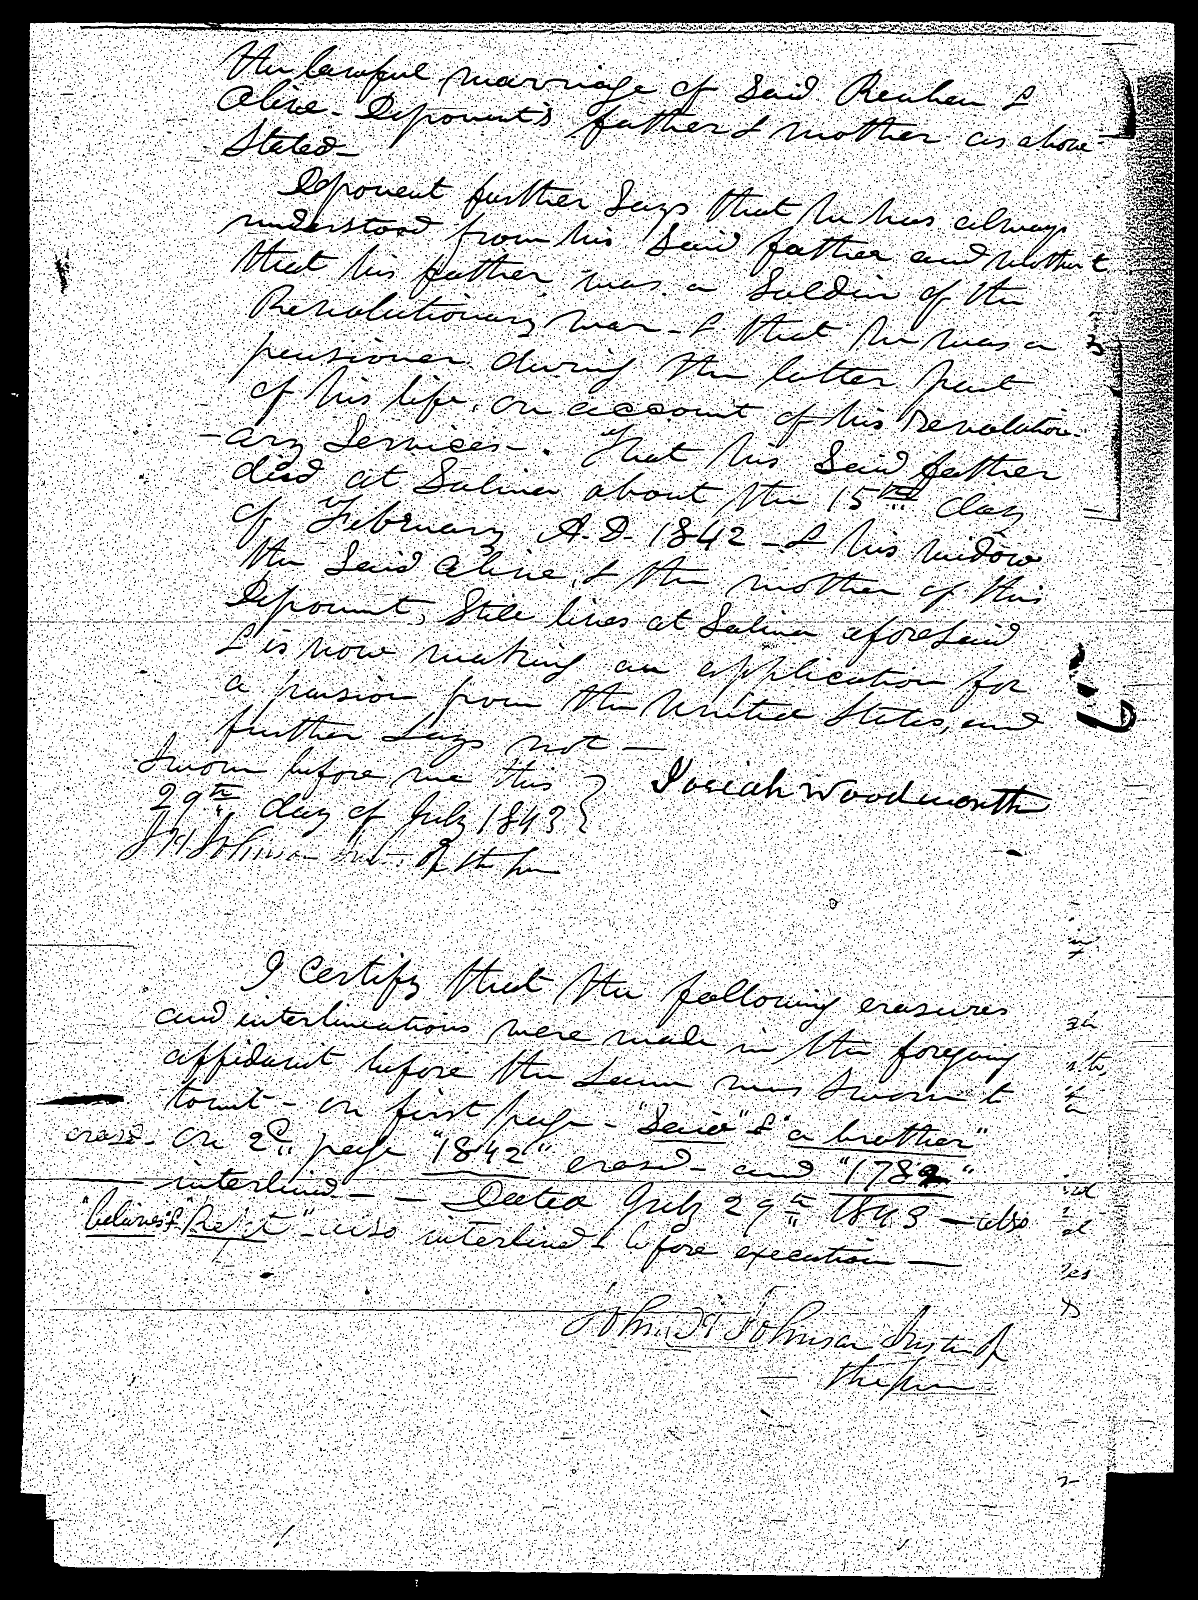 the lawful marriage of Said Reuben &
Alice - Deponent's father & mother as above
Stated -
Deponent further Says that he has always
understood from his Said father and mother
that his father was a Soldier of the
Revolutionary War - & that he was a
pensioner during the latter part
of his life, on account of his Revolution-
-ary Services - That his Said father
died at Salina about the 15th day
of February A.D. 1842 - & his widow
the Said Alice, & the mother of this
Deponent, Still lives at Salina aforesaid
& is now making an application for
a pension from the United States, and
further Says not —
Sworn before me this
29th day of July 1843
Josiah Woodworth
J H Johnson Just. of the peace
I certify that the following erasures
and interlineations were made in the foregoing
affidavit before the Same was Sworn to
towit - on first page - "Said" & "a brother"
erased - on 2d page "1842" erased - and "1782"
interlined - - Dated July 29th 1843 - also
"believes" & - also interlined - before execution —
John H Johnson Justice of
the peace